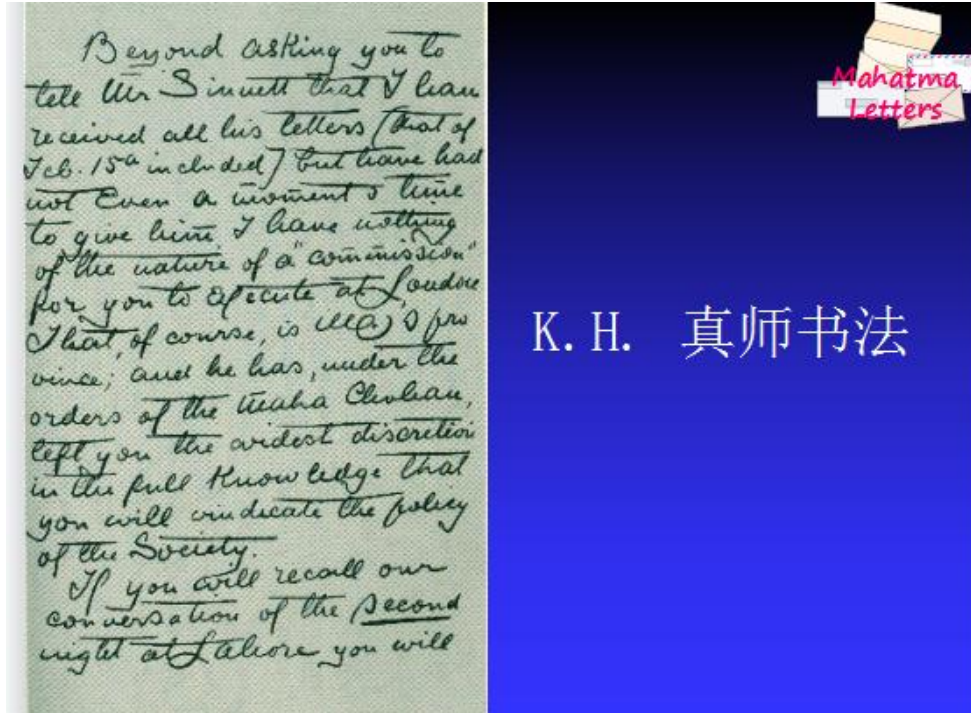 Beyond asking you to
tell Mr Sinnett that I have
received all his letters (that of
Feb. 15th included) but have had
not even a moment's time
to give him I have nothing
of the nature of a "commission"
for you to execute at London
That, of course, is M's pro
vince; and he has, under the
orders of the Maha Chohan,
left you the widest discretion
in the full knowledge that
you will vindicate the policy
of the Society.
If you will recall our
conversation of the second
night at Lahore you will
Mahatma
Letters
K.H. 真师书法